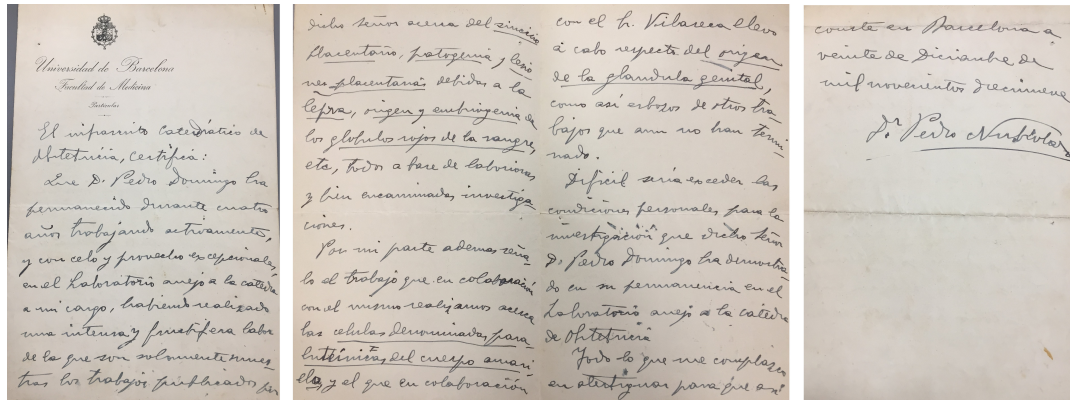 Universidad de Barcelona
Facultad de Medicina
Particular
El infrascrito catedrático de
Obstetricia, certifica:
Que D. Pedro Domingo ha
permanecido durante cuatro
años trabajando activamente,
y con celo y provecho excepcionales,
en el Laboratorio anejo a la catedra
a mi cargo, habiendo realizado
una intensa y fructifera labor
de la que son solamente mues-
tras los trabajos publicados por
dicho señor acerca del sincicio
placentario, patogenia y lesio
nes placentarias debidas a la
lepra, origen y embriogenia de
los globulos rojos de la sangre,
etc, todos a base de laboriosas
y bien encaminadas investiga-
ciones.
Por mi parte ademas seña-
lo el trabajo que en colaboración
con el mismo realizamos acerca
las celulas denominadas para-
luteinicas del cuerpo amari-
llo, y el que en colaboración
con el Sr. Vilaseca llevo
á cabo respecto del origen
de la glandula genital,
como asi esbozos de otros tra
bajos que aun no han termi-
nado.
Dificil seria exceder las
condiciones personales para la
investigación que dicho señor
D. Pedro Domingo ha demostra
do en su permanencia en el
Laboratorio anejo a la catedra
de Obstetricia
Todo lo que me complazco
en atestiguar para que asi
conste en Barcelona a
veinte de Diciembre de
mil novecientos diecinueve
Dr. Pedro Nubiola